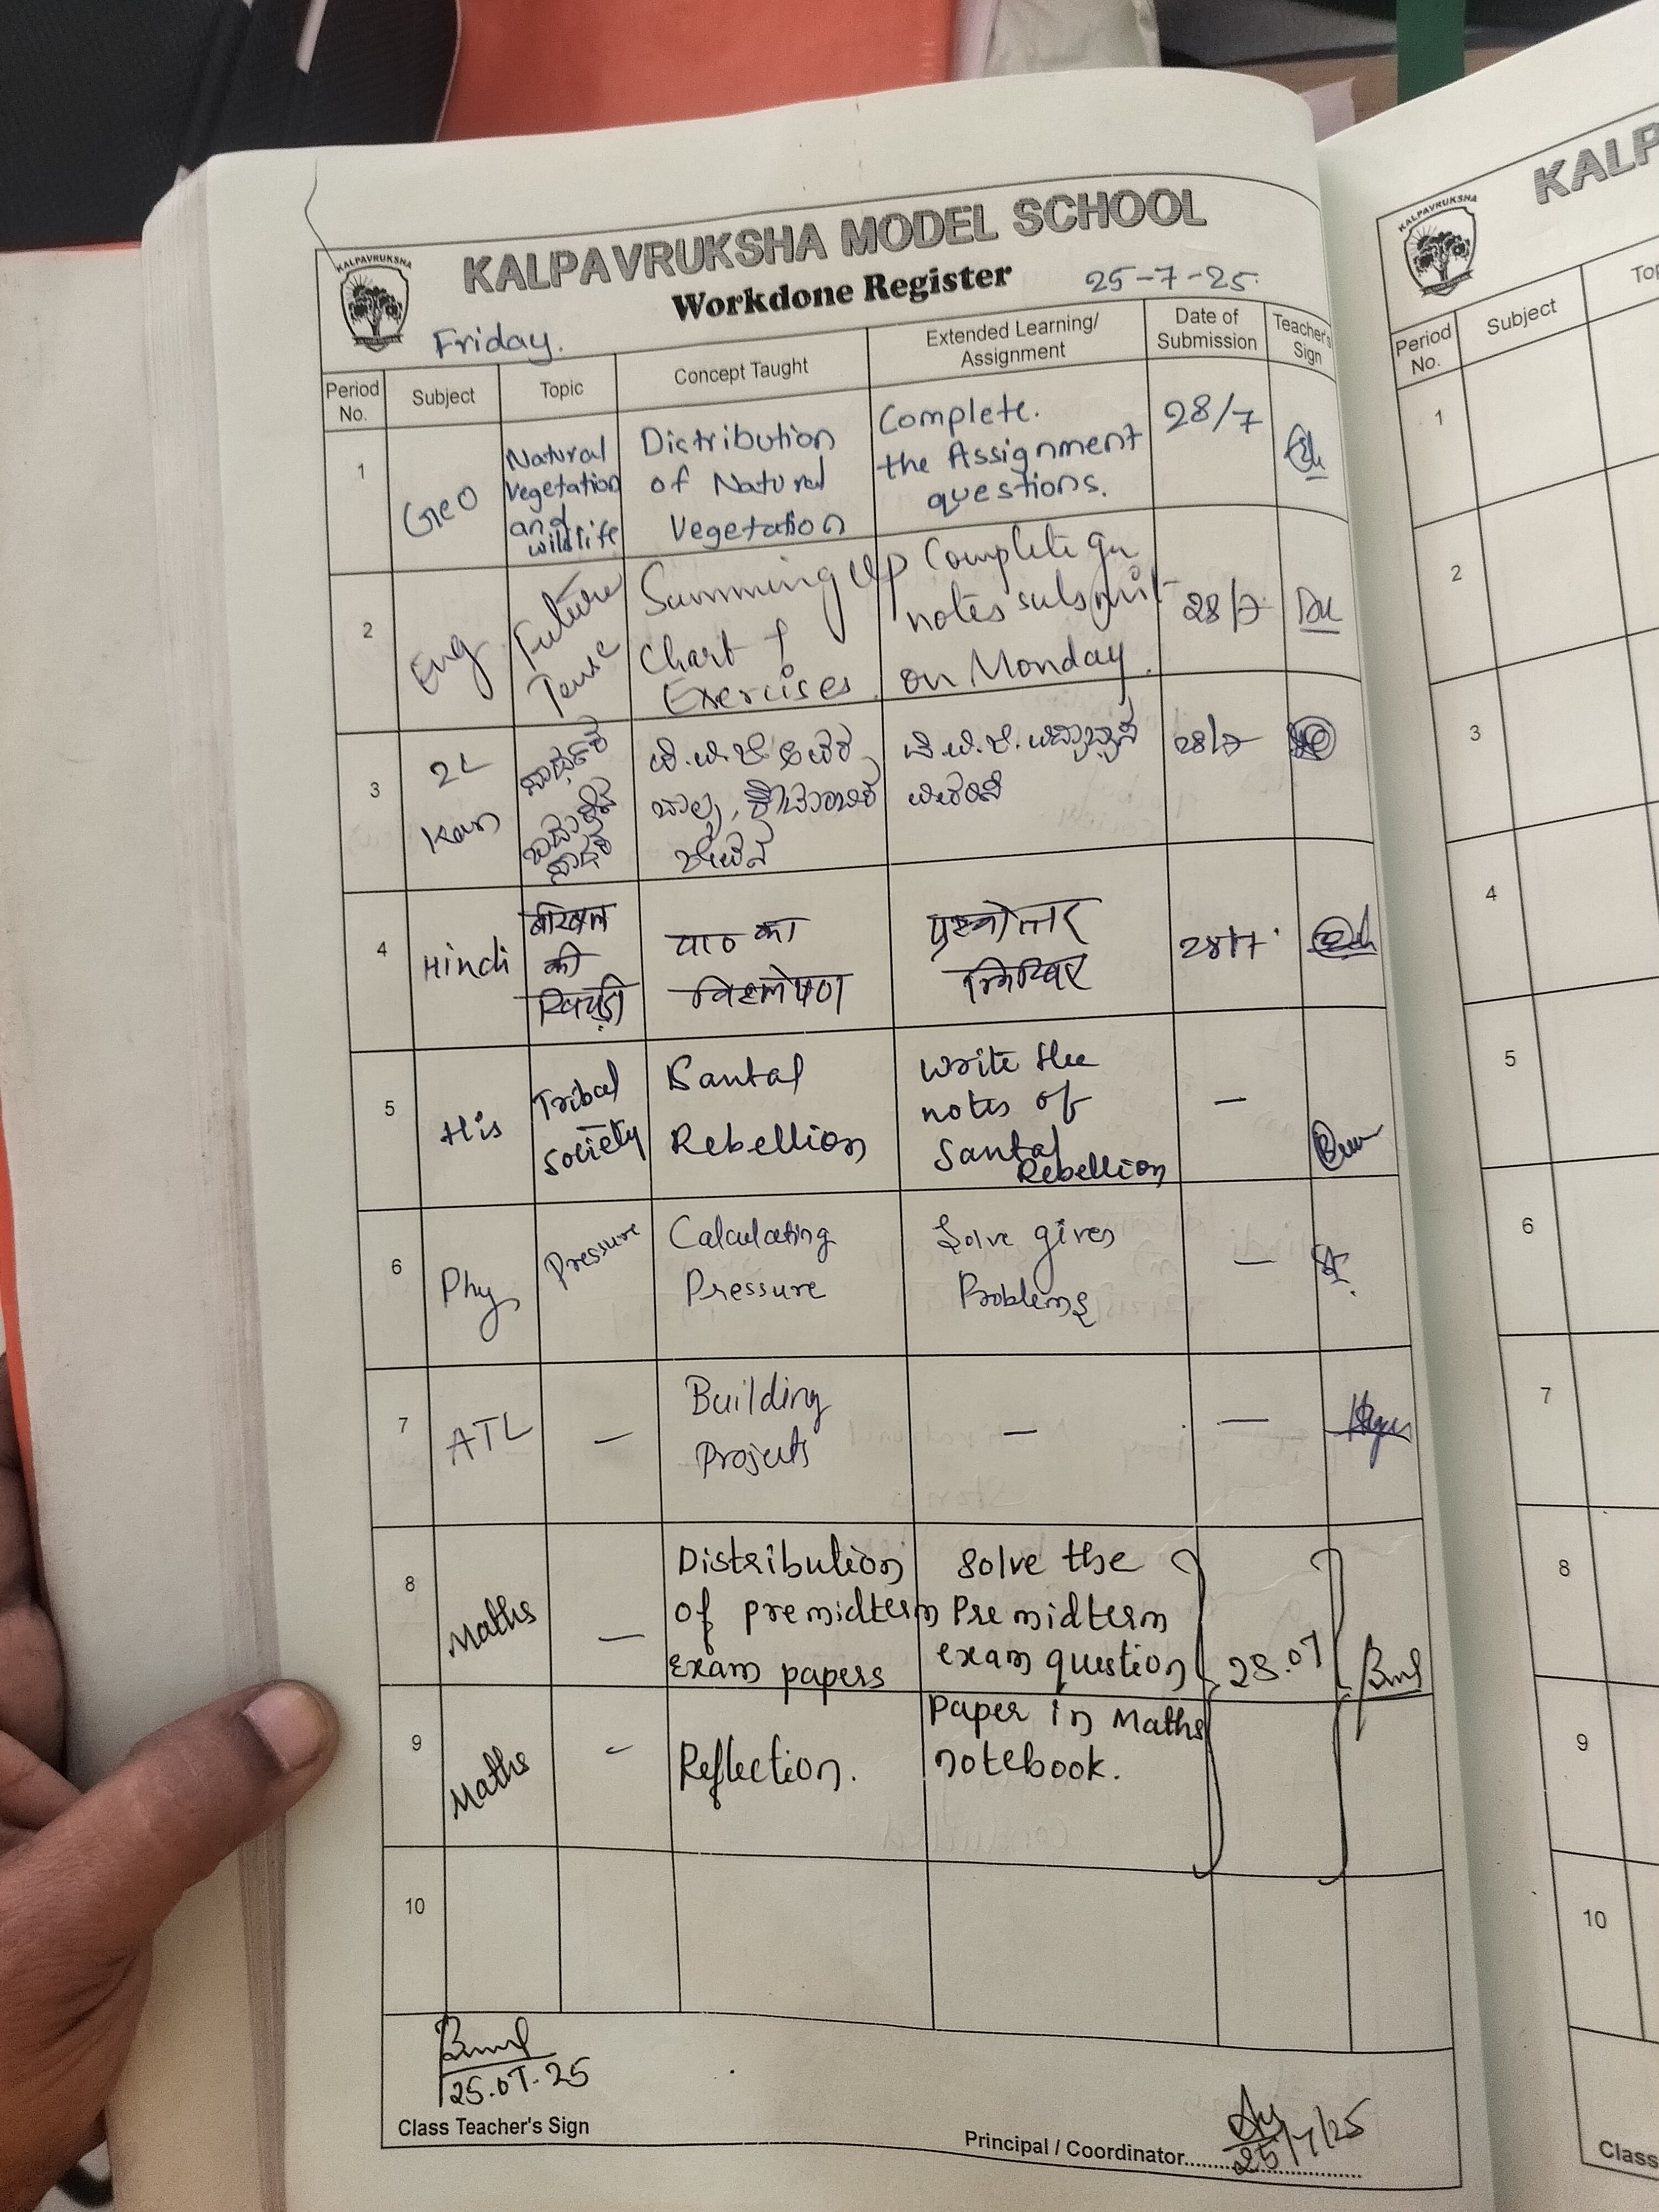 KALPAVRUKSHA
KALPAVRUKSHA MODEL SCHOOL
Workdone Register
25-7-25.
Friday.
Period No. Subject Topic Concept Taught Extended Learning/ Assignment Date of Submission Teacher's Sign
1 Geo Natural Vegetation and wildlife Distribution of Natural Vegetation Complete. the Assignment questions. 28/7
2 Eng Future Tense Summing Up Chart & Exercises. Complete notes submit on Monday. 28/7
3 2L Kan 28/7
4 Hindi की खिचड़ी पाठ का विश्लेषण प्रश्नोत्तर 28/7
5 His Tribal society Santal Rebellion Write the notes of Santal Rebellion —
6 Phy Pressure Calculating Pressure Solve given Problems —
7 ATL — Building Projects — —
8 Maths — Distribution of premidterm exam papers Solve the Pre midterm exam question 28.07
9 Maths — Reflection. Paper in Maths notebook.
10
25.07.25
Class Teacher's Sign
Principal / Coordinator
25/7/25
KALPAVRUKSHA
KALP
Period No. Subject
1
2
3
4
5
6
7
8
9
10
Class